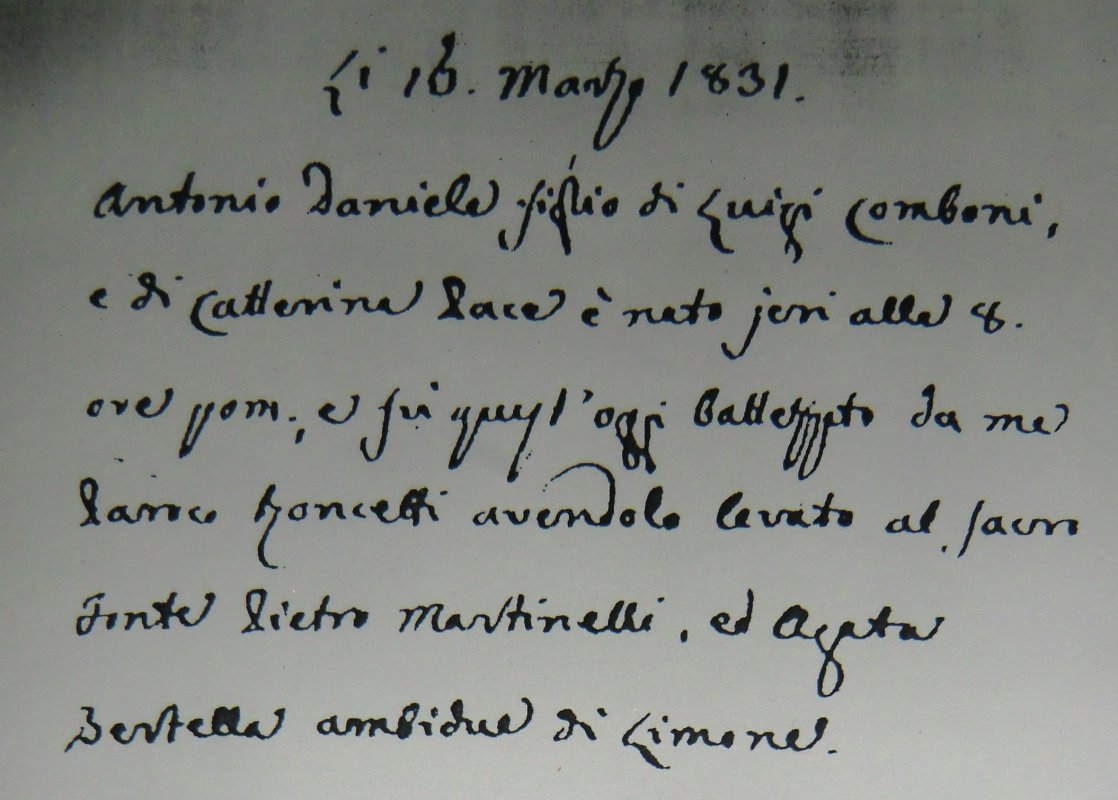 Li 16. Marzo 1831.
Antonio Daniele figlio di Luigi Comboni,
e di Catterina Pace è nato jeri alle 8.
ore pom:, e fù quest'oggi battezzato da me
Paroco Zoncetti avendolo levato al sacro
Fonte Pietro Martinelli, ed Agata
Bertella ambidue di Limone.